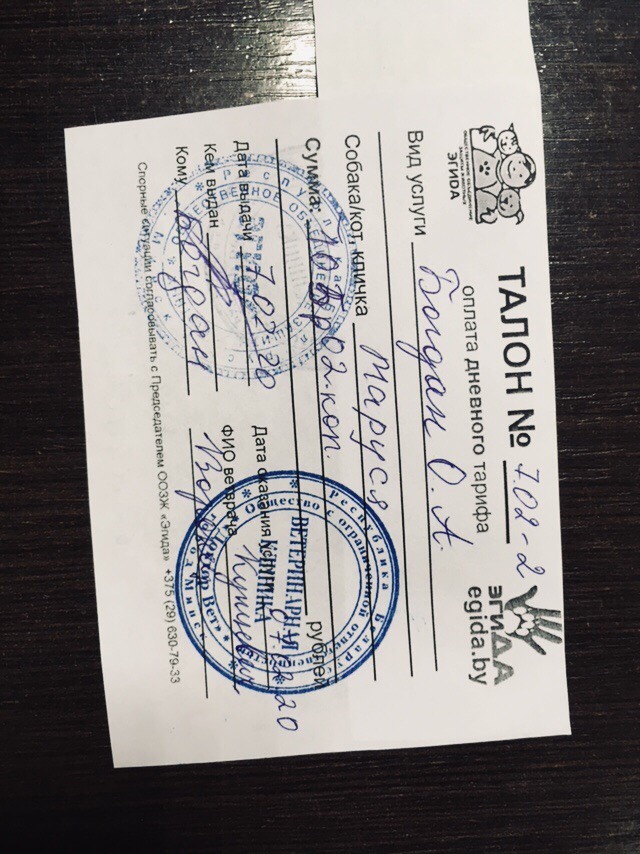 ЭГИДА
ТАЛОН № 7.02-2
оплата дневного тарифа
ЭГИДА
egida.by
Вид услуги Богдан О. А.
Собака/кот, кличка Маруся
Сумма: 10 бр 02 коп. рублей
Дата выдачи 7.02.20 Дата оказания 07.02.20
Кем выдан ФИО ветврача
Кому Богдан
Спорные ситуации согласовывать с Председателем ООЗЖ «Эгида» +375 (29) 630-79-33
Республика Беларусь
Общество с ограниченной ответственностью
ВЕТЕРИНАРНАЯ
КЛИНИКА
Минск